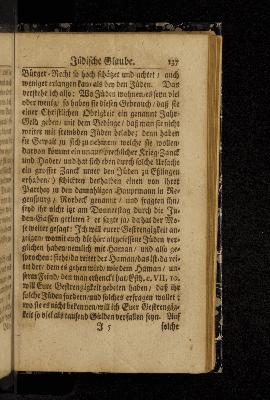 Jüdische Glaube. 137
Bürger-Recht so hoch schätzet und achtet / auch
weniger erlangen kan / als bey den Jüden. Das
verstehe ich also: Wo Jüden wohnen / es seyn viel
oder wenig / so haben sie diesen Gebrauch / daß sie
einer Christlichen Obrigkeit ein genannt Jahr-
Geld geben / mit dem Gedinge / daß man sie nicht
weiter mit frembden Jüden belade; denn haben
sie Gewalt zu sich zu nehmen / welche sie wollen /
darvon kommt ein unaussprechlicher Krieg-Zanck
und Hader / und hat sich eben durch solche Ursache
ein grosser Zanck unter den Jüden zu Eßlingen
erhaben / schickten derhalben einen von ihrer
Parthey zu den damahligen Hauptmann in Re-
genspurg / Norbeck genannt / und fragten ihn /
seyd ihr nicht itzt am Donnerstag durch die Jü-
den-Gassen geritten? er sagte ja / da hat der Mo-
se weiter gesagt: Ich will eurer Gestrengigkeit an-
zeigen / womit euch die hier angesessene Jüden ver-
glichen haben / nemlich mit Haman / und also ge-
sprochen: sehet / da reitet der Haman / das ist / da rei-
tet der / dem es gehen wird / wie dem Haman / un-
serm Feind / den man erhenckt hat / Esth. c. VII, 10.
will Eure Gestrengigkeit gebeten haben / daß ihr
solche Jüden fordern / und solches erfragen wollet;
wo sie es nicht bekennen / will ich Euer Gestrengig-
keit so viel als tausend Gülden verfallen seyn. Auf
J 5 solche